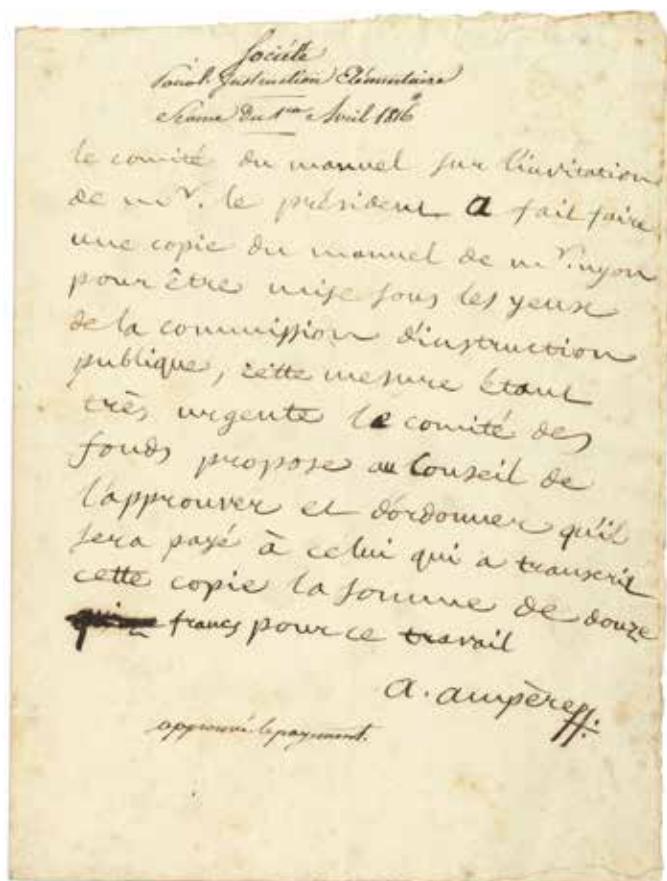 Société
pour l'Instruction Elémentaire
Séance Du 1er Avril 1816
le comité du manuel sur l'invitation
de mr. le président a fait faire
une copie du manuel de mr. nyon
pour être mise sous les yeux
de la commission d'instruction
publique, cette mesure étant
très urgente le comité des
fonds propose au Conseil de
l'approuver et d'ordonner qu'il
sera payé à celui qui a transcrit
cette copie la somme de douze
francs pour ce travail
a. ampère
approuvé le payement.